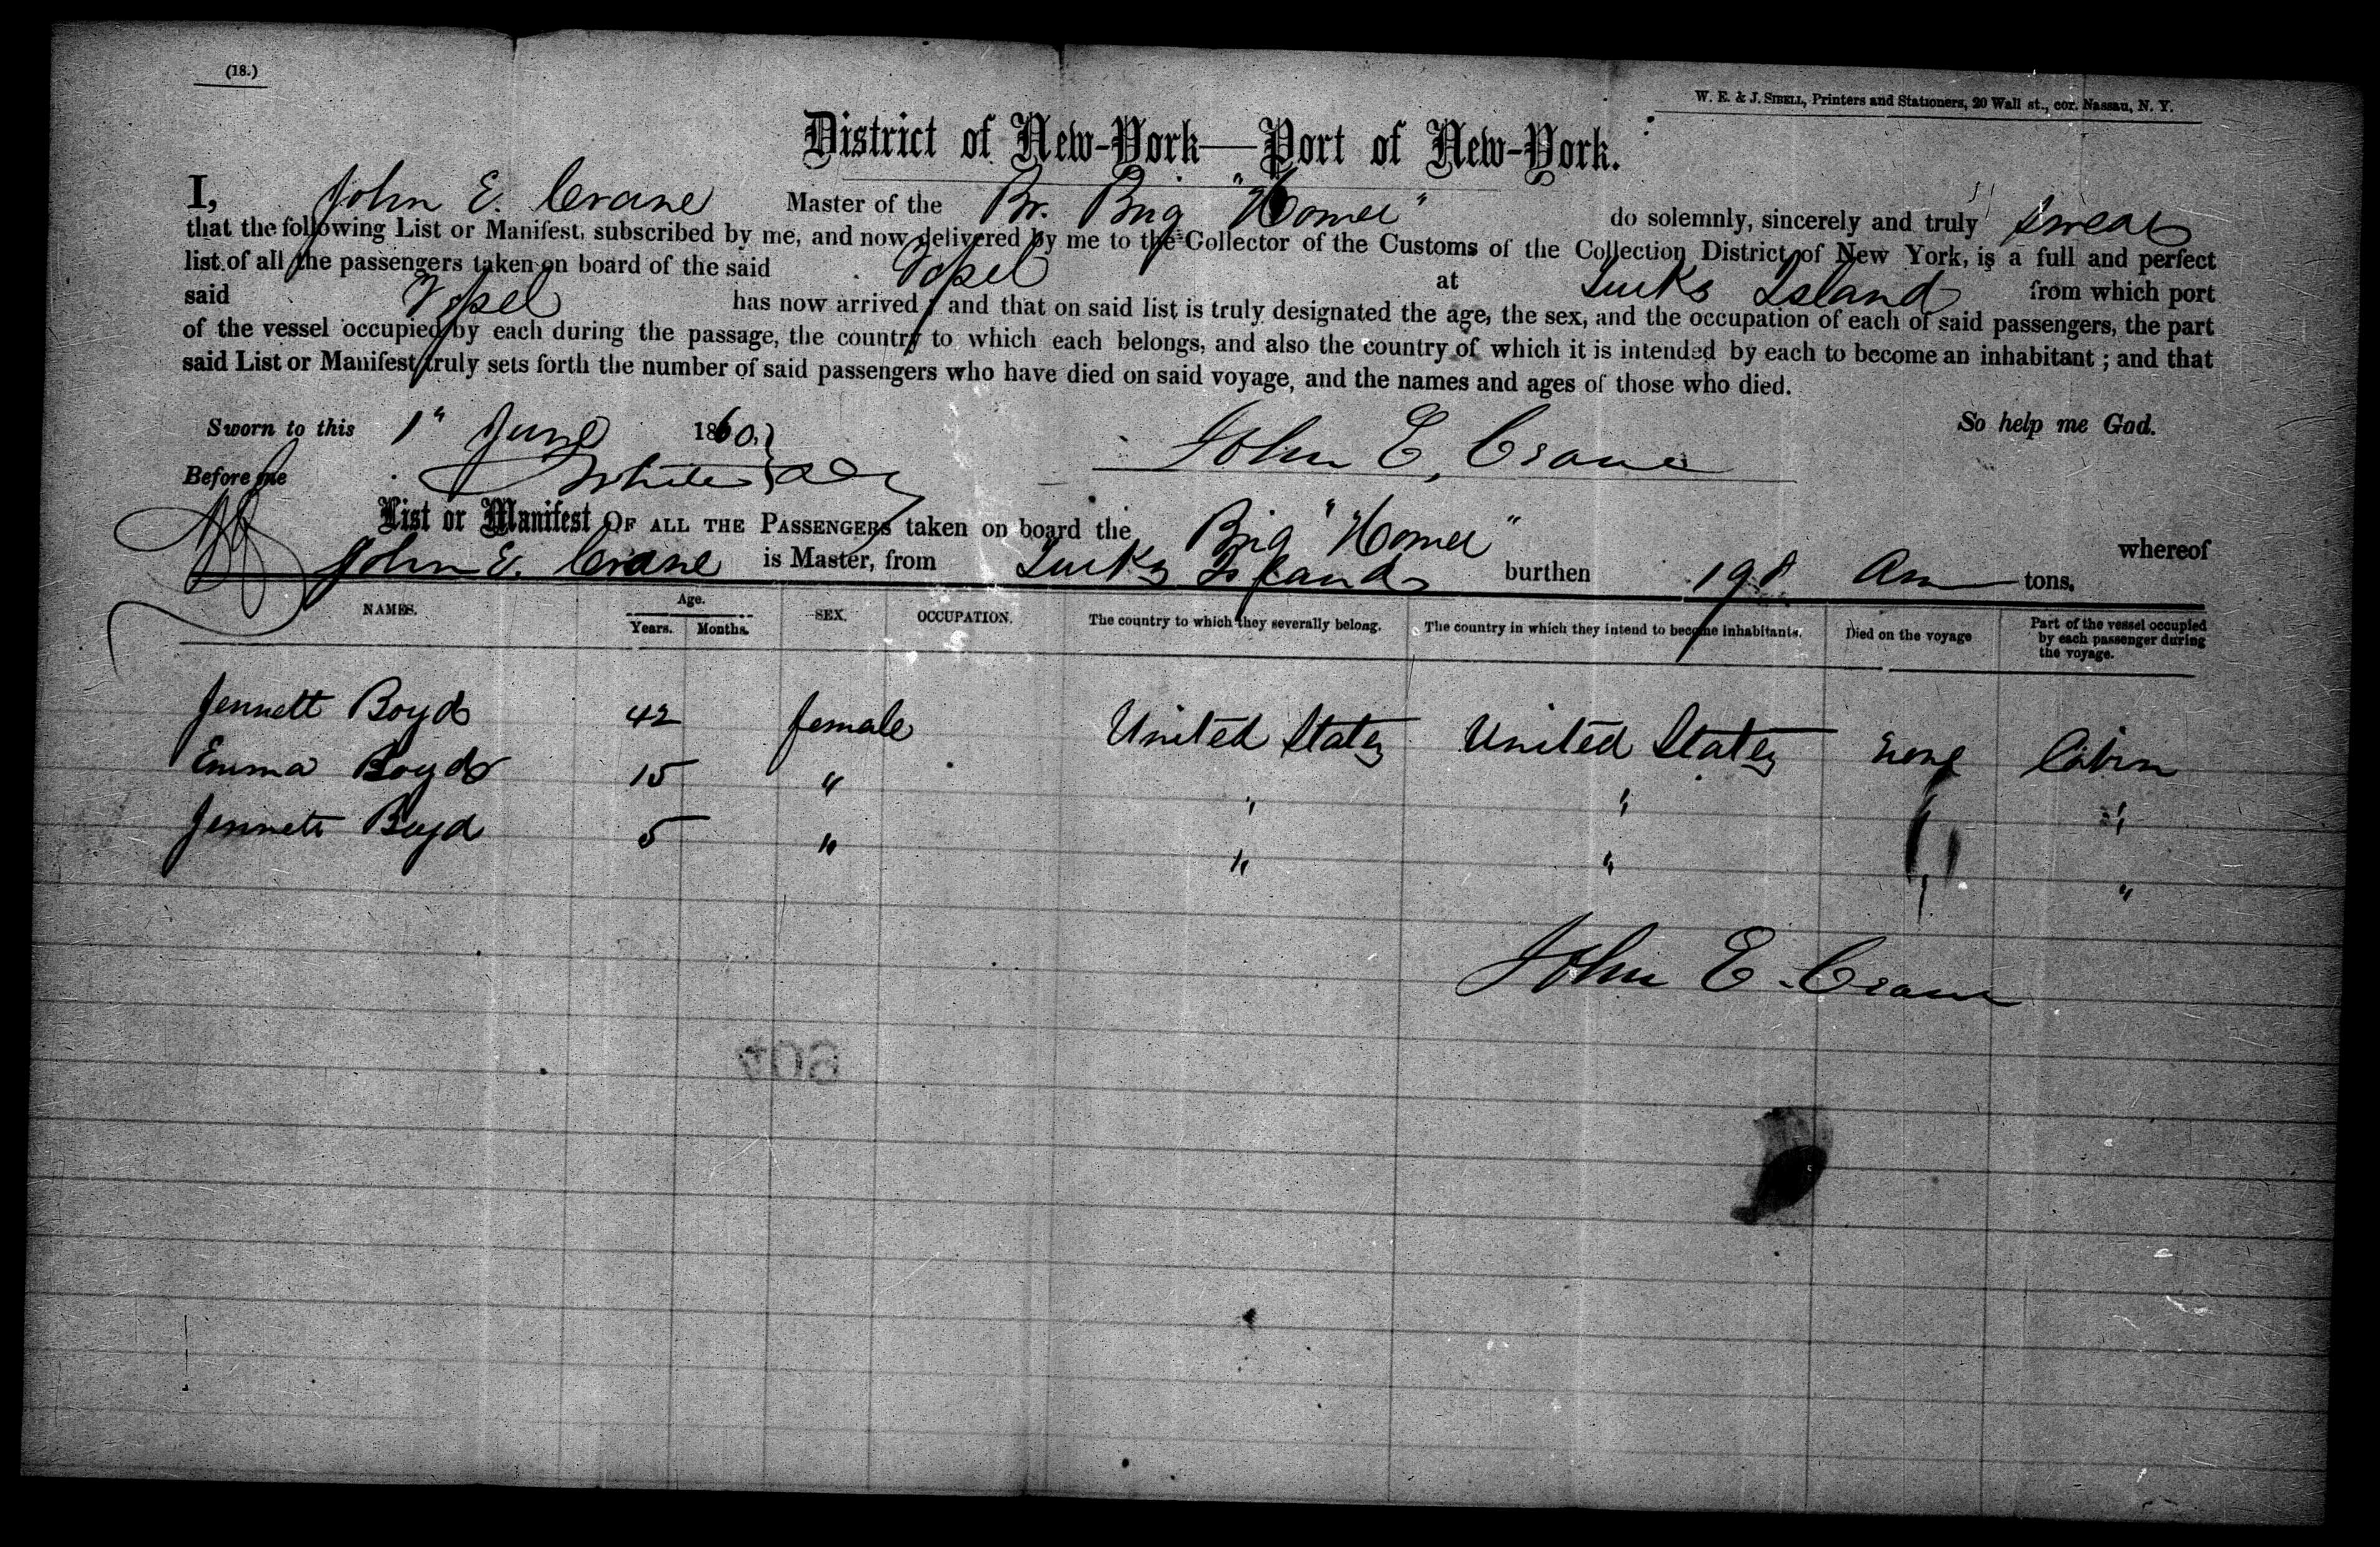 (18.)
W. E. & J. SIBELL, Printers and Stationers, 20 Wall st., cor. Nassau, N. Y.
District of New-York—Port of New-York.
I, John E. Crane Master of the Br. Brig "Homer" do solemnly, sincerely and truly swear
that the following List or Manifest, subscribed by me, and now delivered by me to the Collector of the Customs of the Collection District of New York, is a full and perfect
list of all the passengers taken on board of the said Vessel at Turks Island from which port
said Vessel has now arrived; and that on said list is truly designated the age, the sex, and the occupation of each of said passengers, the part
of the vessel occupied by each during the passage, the country to which each belongs, and also the country of which it is intended by each to become an inhabitant; and that
said List or Manifest truly sets forth the number of said passengers who have died on said voyage, and the names and ages of those who died.
Sworn to this 1" June 1860. John E. Crane So help me God.
Before me
List or Manifest OF ALL THE PASSENGERS taken on board the Brig "Homer" whereof
John E. Crane is Master, from Turks Island burthen 198 tons.
NAMES. Age. Years. Months. SEX. OCCUPATION. The country to which they severally belong. The country in which they intend to become inhabitants. Died on the voyage Part of the vessel occupied by each passenger during the voyage.
Jennett Boyd 42 female United States United States none Cabin
Emma Boyd 15 " " " " "
Jennett Boyd 5 " " " " "
John E. Crane
409